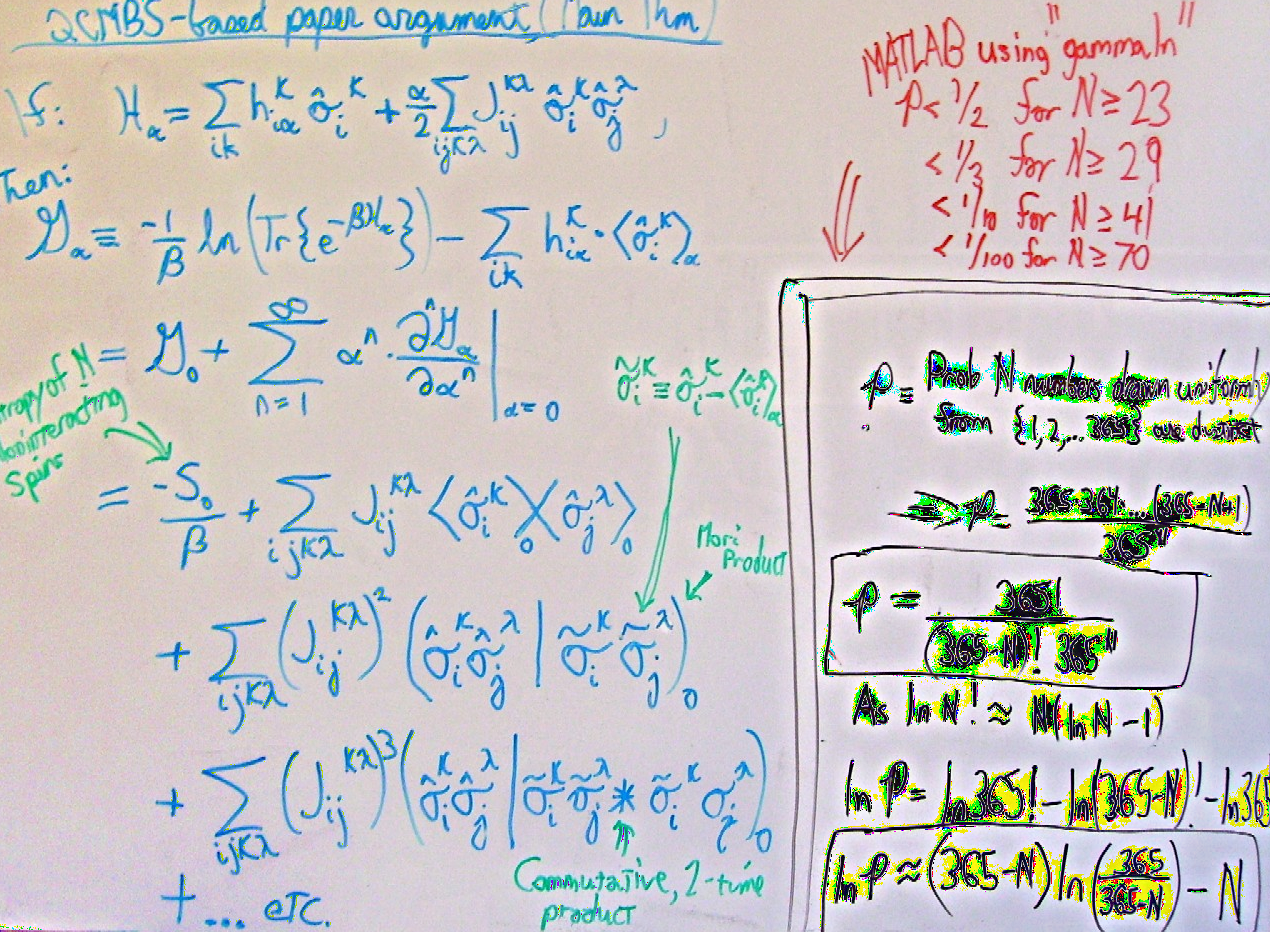 2CMBS-based paper argument, (Main Thm)
If: H_α = Σ_{ik} h_{iα}^K σ̂_i^K + α/2 Σ_{ijKλ} J_{ij}^{Kλ} σ̂_i^K σ̂_j^λ ,
Then:
𝒢_α ≡ -1/β ln(Tr{e^{-βH_α}}) - Σ_{ik} h_{iα}^K · ⟨σ̂_i^K⟩_α
= 𝒢_0 + Σ_{n=1}^{∞} α^n · ∂^n 𝒢_α / ∂α^n |_{α=0}
σ̃_i^K ≡ σ̂_i^K - ⟨σ̂_i^K⟩_α
of N
noninteracting
spins
= -S_0/β + Σ_{ijKλ} J_{ij}^{Kλ} ⟨σ̂_i^K⟩_0 ⟨σ̂_j^λ⟩_0
Mori
Product
+ Σ_{ijKλ} (J_{ij}^{Kλ})^2 (σ̂_i^K σ̂_j^λ | σ̃_i^K σ̃_j^λ)_0
+ Σ_{ijKλ} (J_{ij}^{Kλ})^3 (σ̂_i^K σ̂_j^λ | σ̃_i^K σ̃_j^λ * σ̃_i^K σ_i^λ)_0
Commutative, 2-time
product
+ ... etc.
MATLAB using "gammaln"
p < 1/2 for N ≥ 23
< 1/3 for N ≥ 29
< 1/10 for N ≥ 41
< 1/100 for N ≥ 70
p ≡ Prob N numbers drawn uniformly
from {1,2,...365} are distinct
⇒ p = 365·364...(365-N+1) / 365^N
p = 365! / (365-N)! 365^N
As ln N! ≈ N(ln N - 1)
ln P = ln 365! - ln(365-N)! - ln 365
ln P ≈ (365-N) ln(365/(365-N)) - N